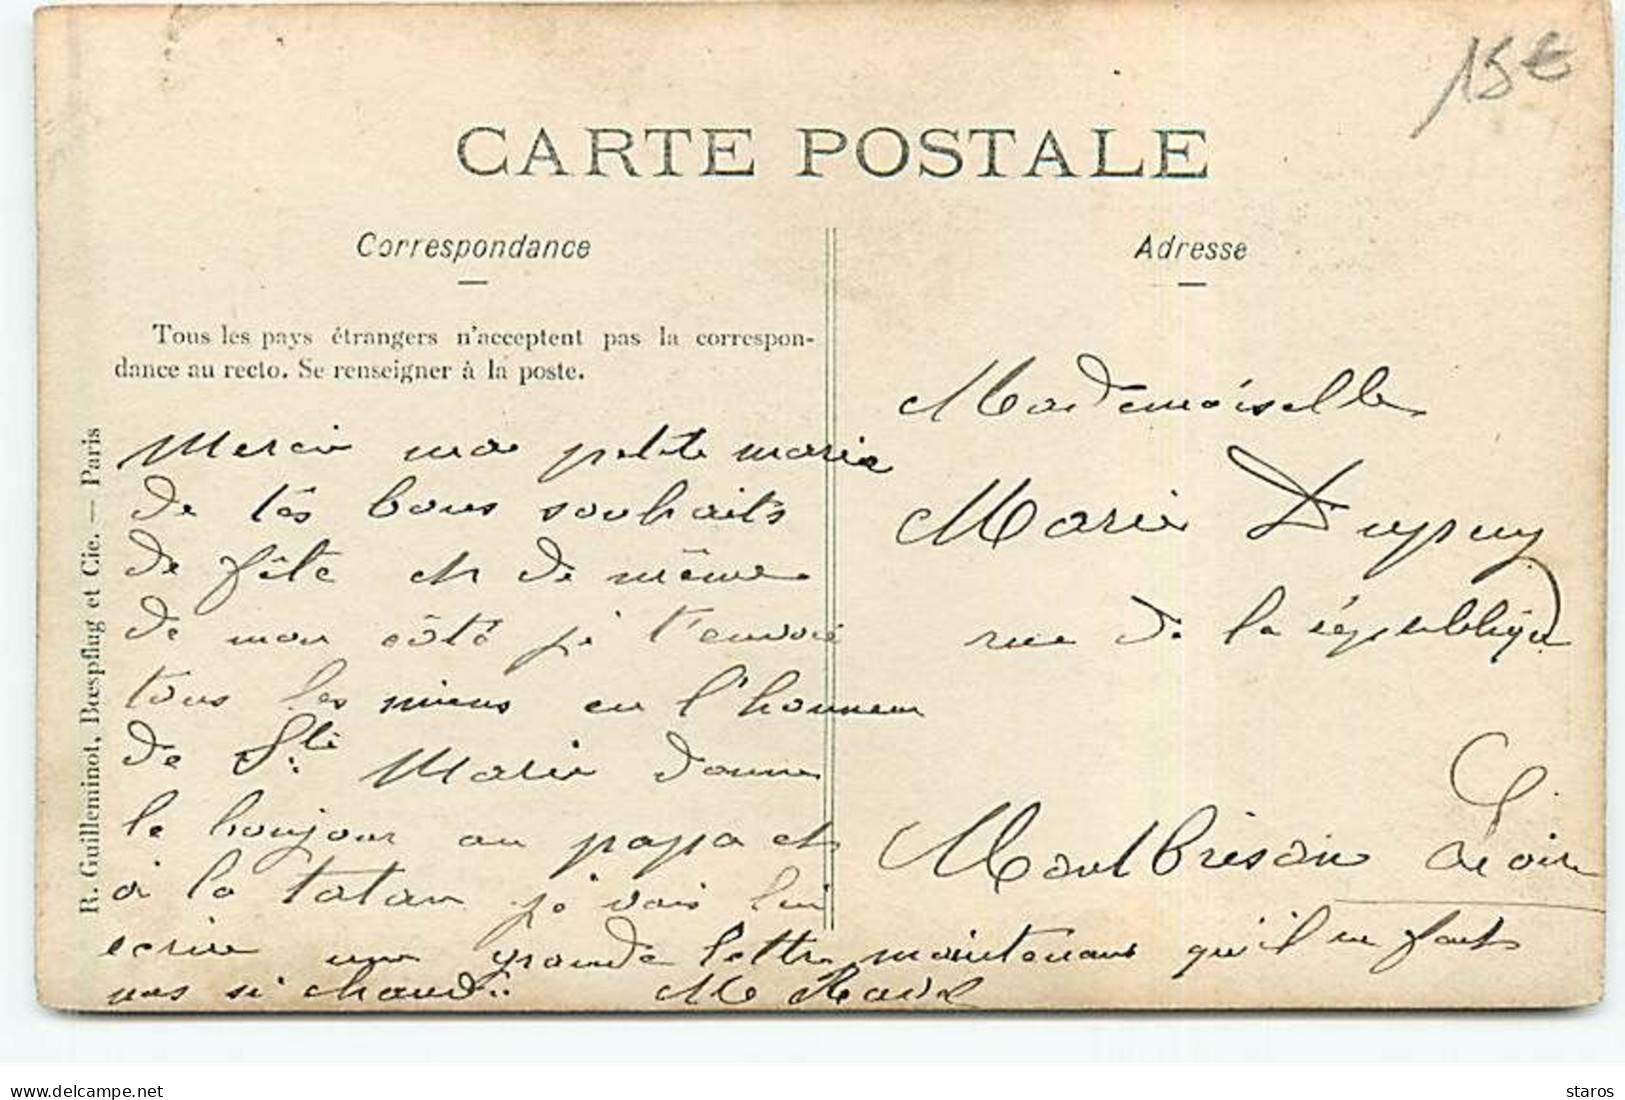 15€
CARTE POSTALE
Correspondance
Adresse
Tous les pays étrangers n'acceptent pas la correspon-
dance au recto. Se renseigner à la poste.
R. Guilleminot, Bœspflug et Cie. — Paris
Merci ma petite marie
de tes bons souhaits
de fête et de même
de mon côté je t'envoie
tous les miens en l'honneur
de Ste Marie donne
le bonjour au papa et
à la tatan je vais lui
ecrire une grande lettre maintenant qu'il ne fait
pas si chaud M
Mademoiselle
Marie Dupuy
rue de la république
Montbrison Loire
delcampe.net
staros